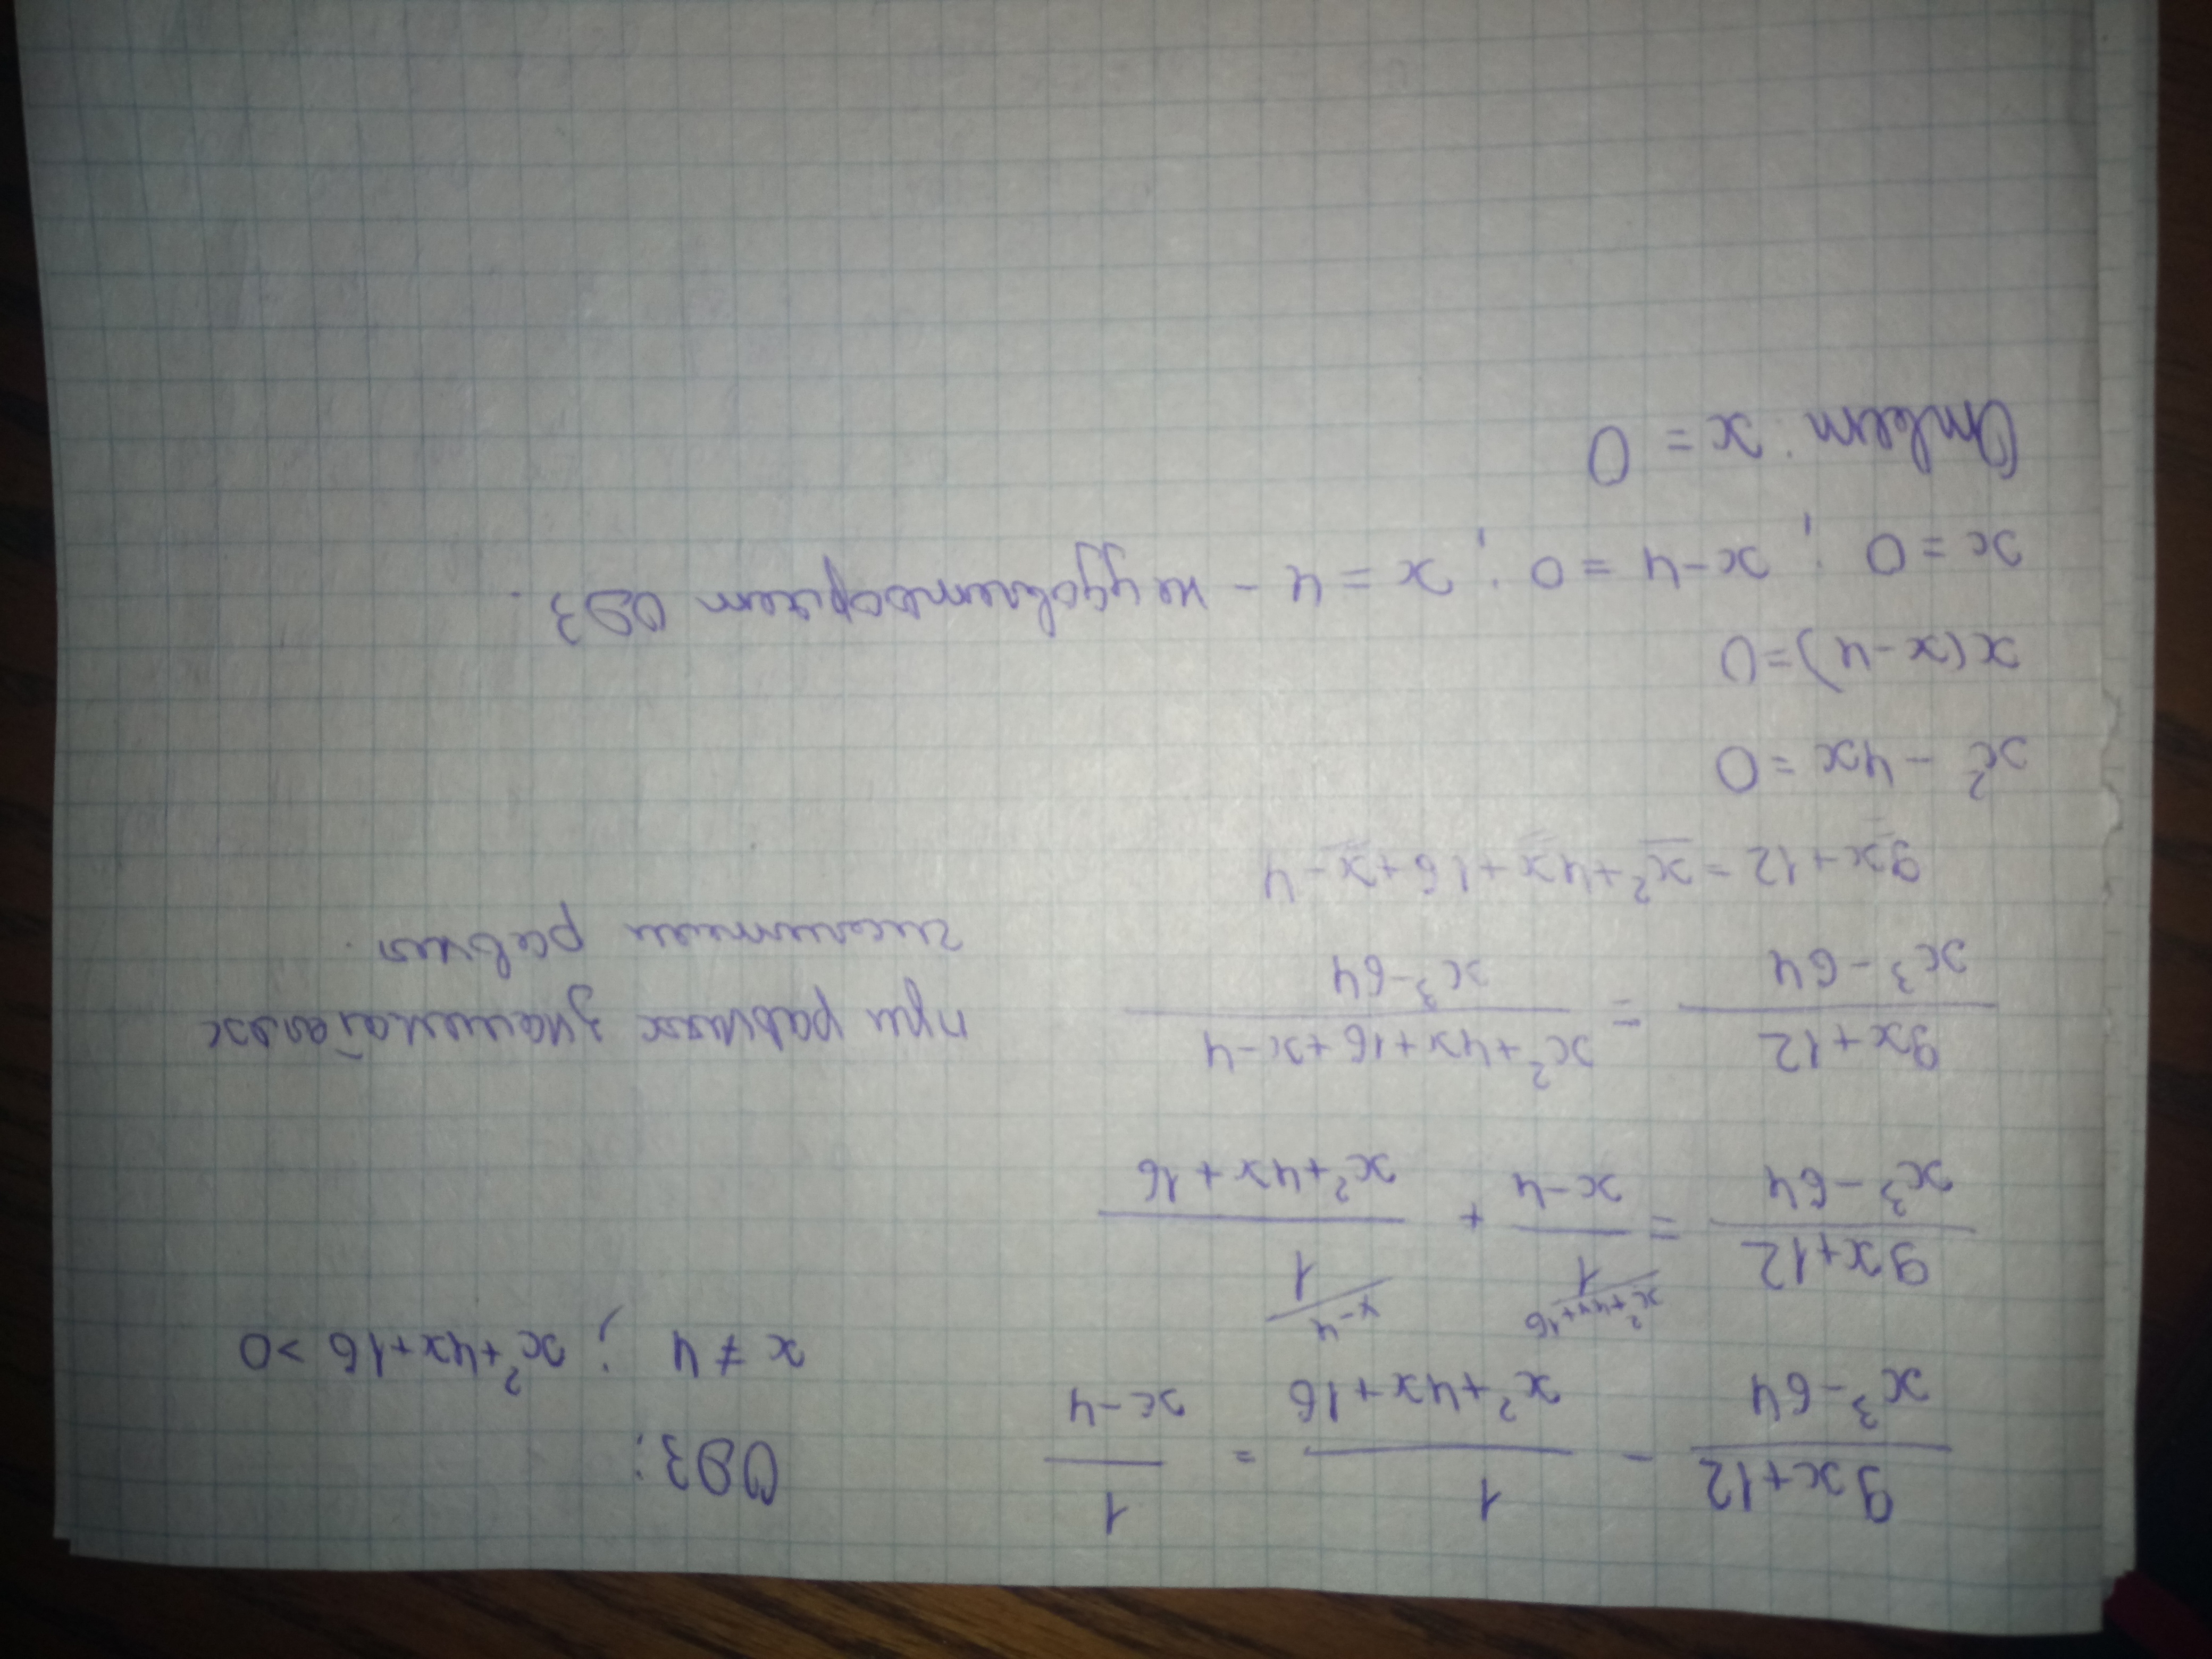 (9x+12)/(x³-64) - 1/(x²+4x+16) = 1/(x-4)
ОДЗ:
x ≠ 4 ; x²+4x+16 >0
(9x+12)/(x³-64) = 1/(x-4) + 1/(x²+4x+16)
x²+4x+16
x-4
(9x+12)/(x³-64) = (x²+4x+16+x-4)/(x³-64)
при равных знаменателях
числители равны.
9x+12 = x²+4x+16+x-4
x² -4x =0
x(x-4)=0
x=0 ; x-4=0 ; x=4 - не удовлетворяет ОДЗ.
Ответ: x=0